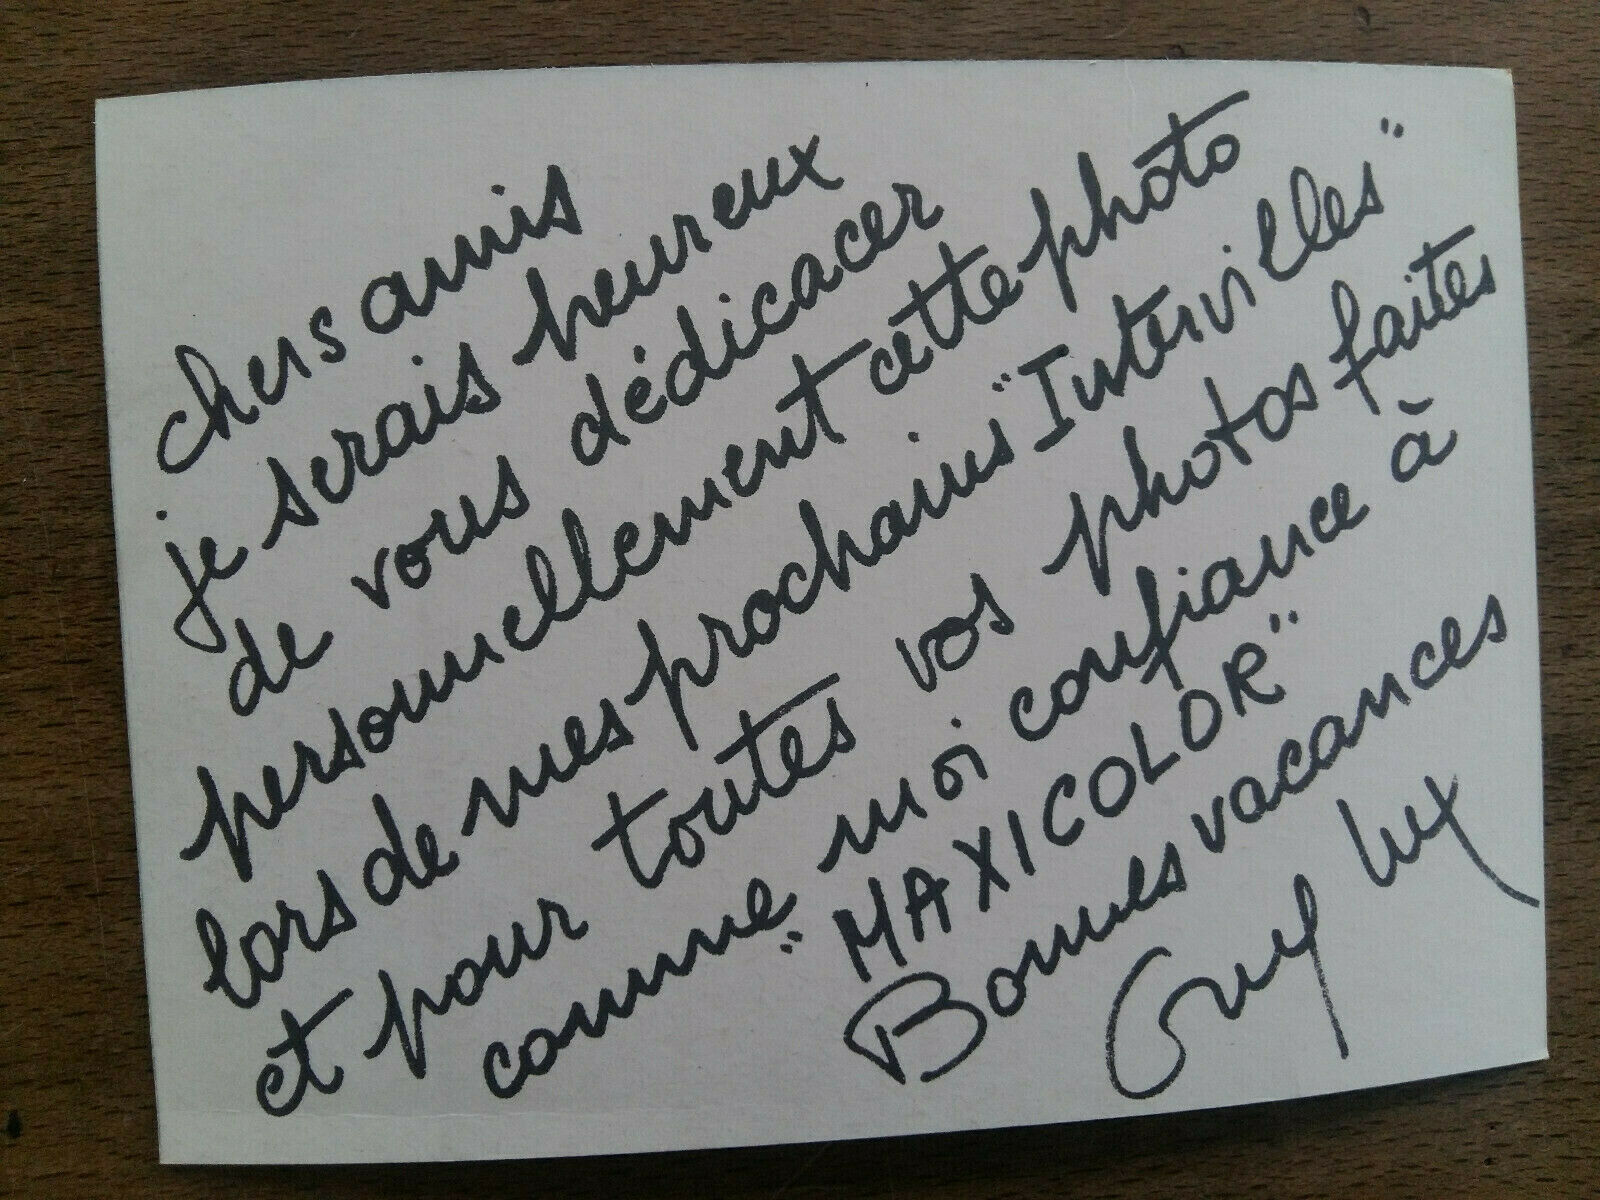 chers amis
je serais heureux
de vous dédicacer
personnellement cette photo
lors de mes prochains "Intervilles"
et pour toutes vos photos faites
comme moi confiance à
"MAXICOLOR"
Bonnes vacances
Guy Lux